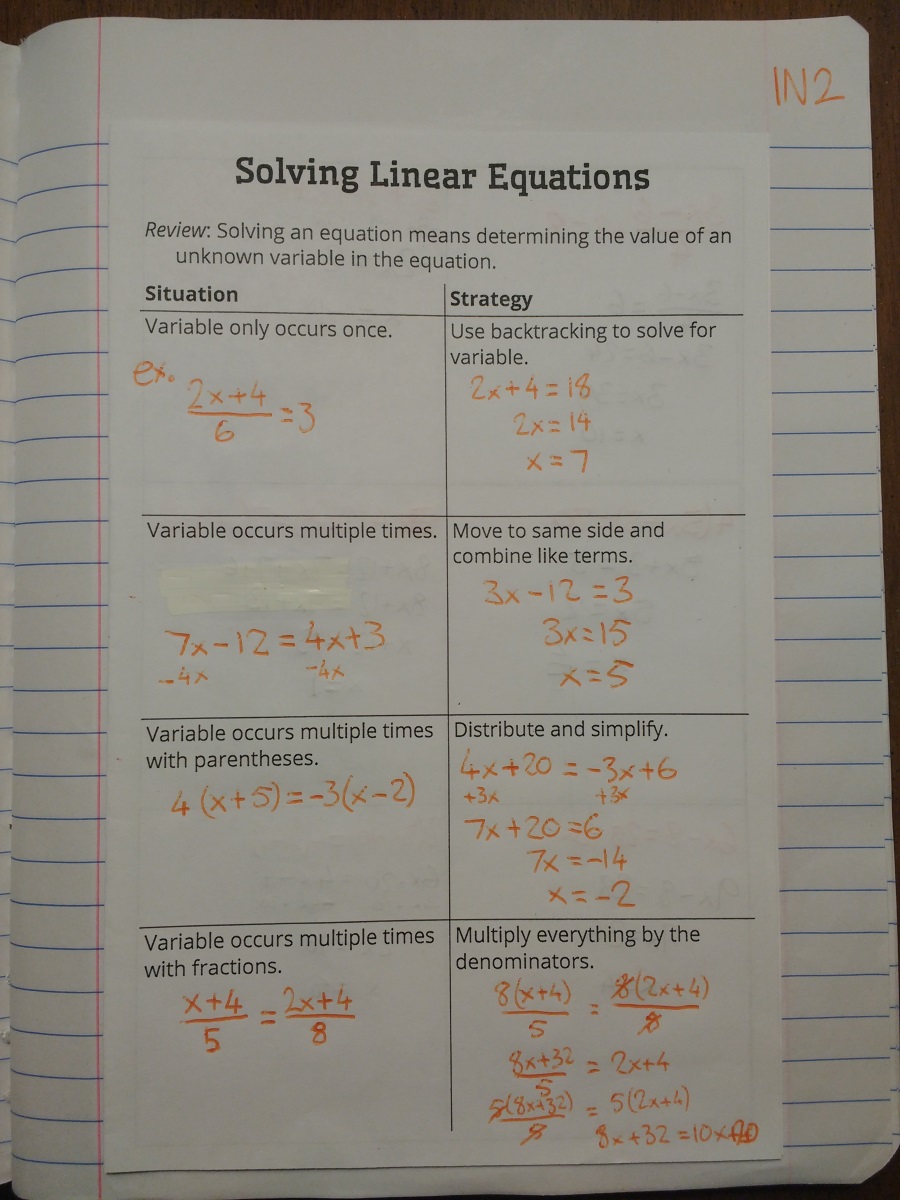 IN2
Solving Linear Equations
Review: Solving an equation means determining the value of an
unknown variable in the equation.
Situation
Strategy
Variable only occurs once.
ex.
2x+4
6
=3
Use backtracking to solve for
variable.
2x+4=18
2x=14
x=7
Variable occurs multiple times.
7x-12=4x+3
-4x -4x
Move to same side and
combine like terms.
3x-12=3
3x=15
x=5
Variable occurs multiple times
with parentheses.
4(x+5)=-3(x-2)
Distribute and simplify.
4x+20=-3x+6
+3x +3x
7x+20=6
7x=-14
x=-2
Variable occurs multiple times
with fractions.
x+4 = 2x+4
5 8
Multiply everything by the
denominators.
8(x+4) = 8(2x+4)
5 8
8x+32 = 2x+4
5
5(8x+32) = 5(2x+4)
8x+32=10x+20